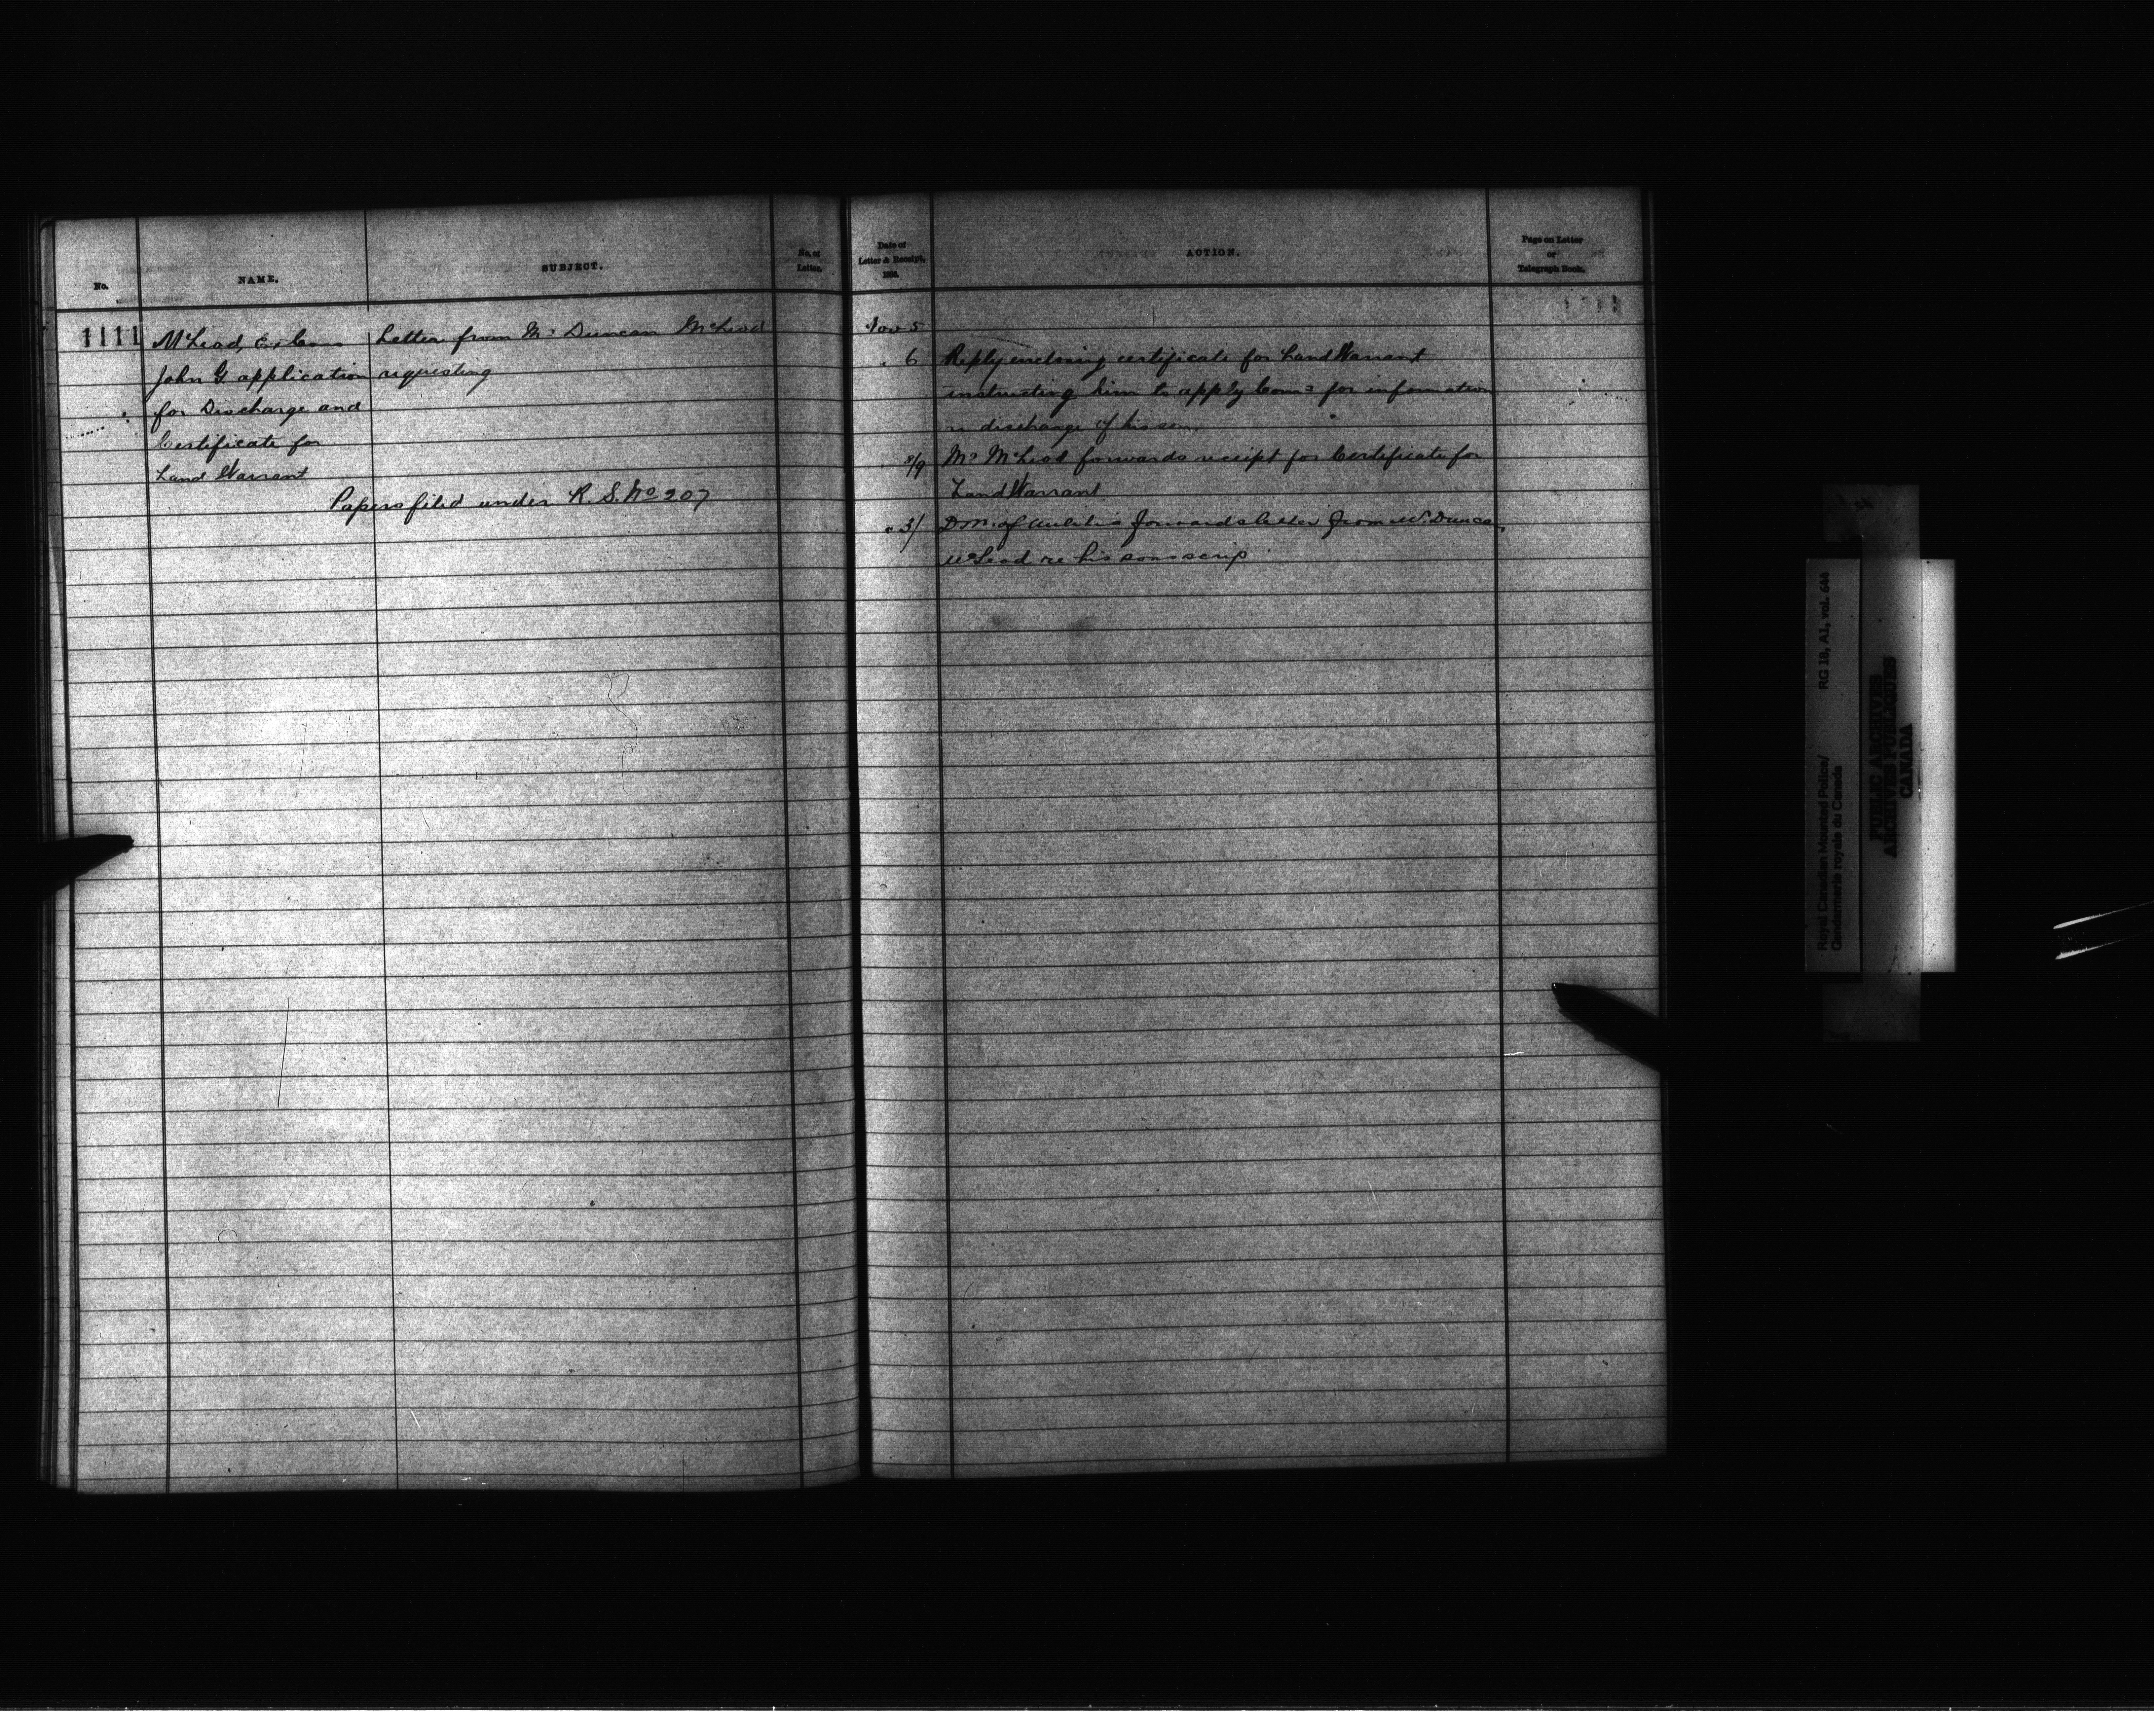 No.
NAME.
SUBJECT.
No. of
Letter.
1111
McLeod, Ex Cons
John G. application
for Discharge and
Certificate for
Land Warrant
Letter from Mr Duncan McLeod
requesting
Papers filed under R. S. No 207
Date of
Letter & Receipt,
188
ACTION.
Page on Letter
or
Telegraph Book.
Nov 5
" 6 Reply enclosing certificate for Land Warrant
instructing him to apply Comr for information
re discharge of his son.
8/9 Mr McLeod forwards receipt for Certificate for
Land Warrant
Dm. of Militia forwards letter from Mr. Duncan
McLeod re his sons scrip
Royal Canadian Mounted Police/
Gendarmerie royale du Canada
RG 18, A1, vol. 644
PUBLIC ARCHIVES
ARCHIVES PUBLIQUES
CANADA